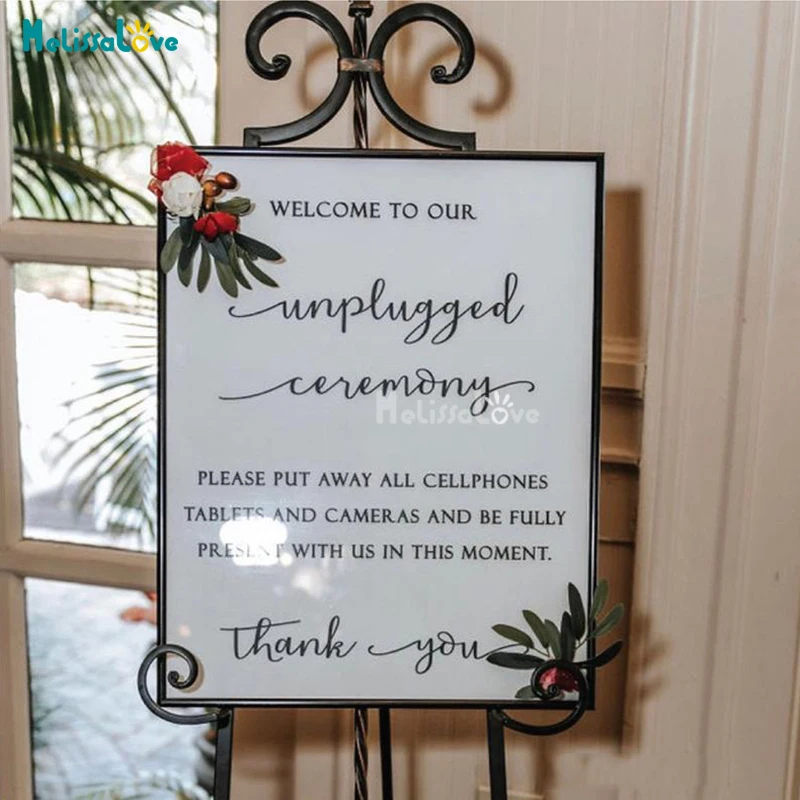 MelissaLove
WELCOME TO OUR
unplugged
ceremony
MelissaLove
PLEASE PUT AWAY ALL CELLPHONES
TABLETS AND CAMERAS AND BE FULLY
PRESENT WITH US IN THIS MOMENT.
thank you